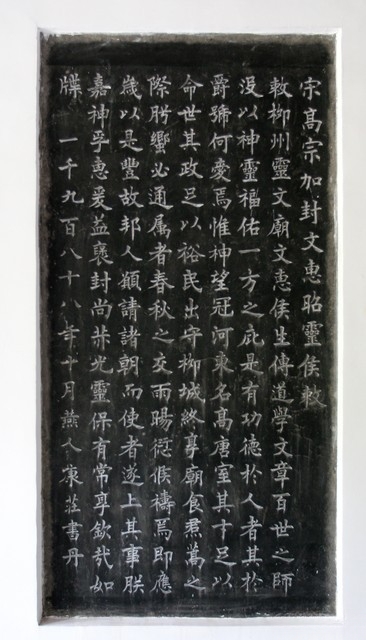 宋高宗加封文惠昭靈侯敕
敕柳州靈文廟文惠侯生傳道學文章百世之師
沒以神靈福佑一方之庇是有功德於人者其於
爵號何愛焉惟神望冠河東名高唐室其才足以
命世其政足以裕民出守柳城終享廟食焄蒿之
際肹蠁必通属者春秋之交雨暘愆候禱焉即應
歲以是豐故邦人顓請諸朝而使者遂上其事朕
嘉神孚惠爰益褒封尚荞光靈保有常享欽哉如
牒 一千九百八十八年十月燕人康莊書丹